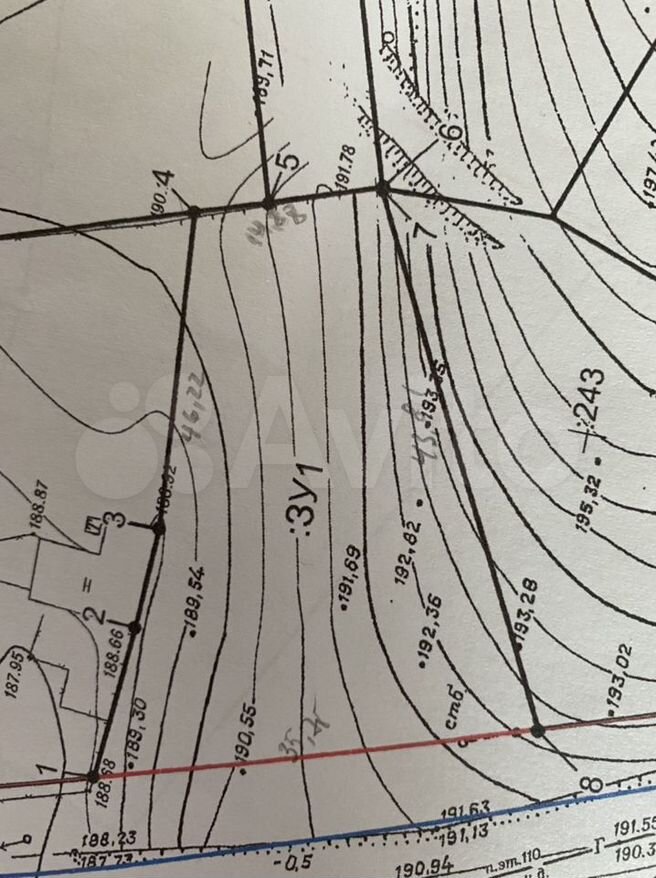 189,71
6
4
190.
5
191.78
7
197,
:243
46,22
193,
195,32
:ЗУ1
3
188.87
192,82
191,69
2
188.66
189,54
192,36
193,28
187.95
193,02
стб
189,30
190,55
1
188.68
8
188.23
187.73
191,63
191,13
-0,5
190.94
п.эт.110
Г
191.55
190.3
Avito